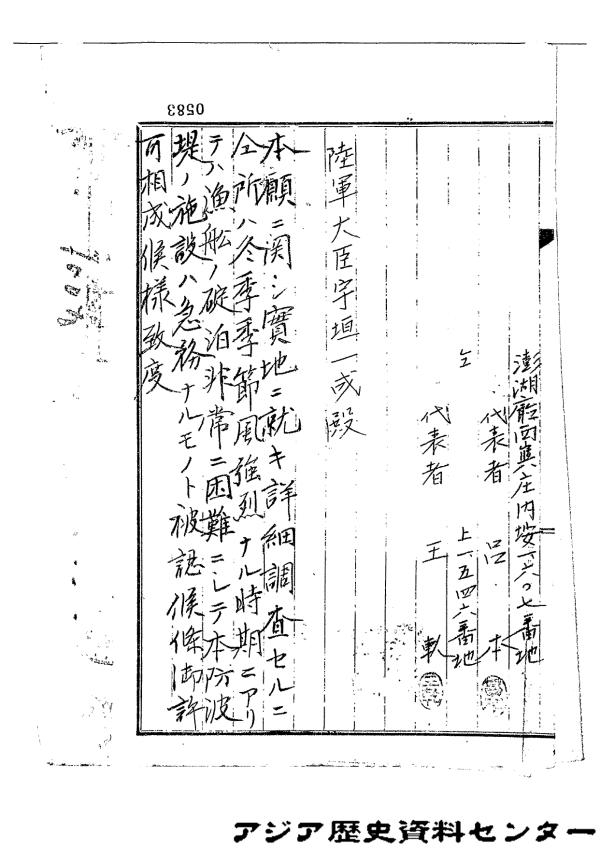 0583
澎湖廳西嶼庄内垵一六〇七番地
代表者 呂 本
仝 上一五四六番地
代表者 王 軌
陸軍大臣宇垣一成殿
本願ニ関シ實地ニ就キ詳細調査セルニ
仝所ハ冬季季節風強烈ナル時期ニアリ
テハ漁船ノ碇泊非常ニ困難ニシテ本防波
堤ノ施設ハ急務ナルモノト被認候條御許
可相成候様致度
アジア歴史資料センター